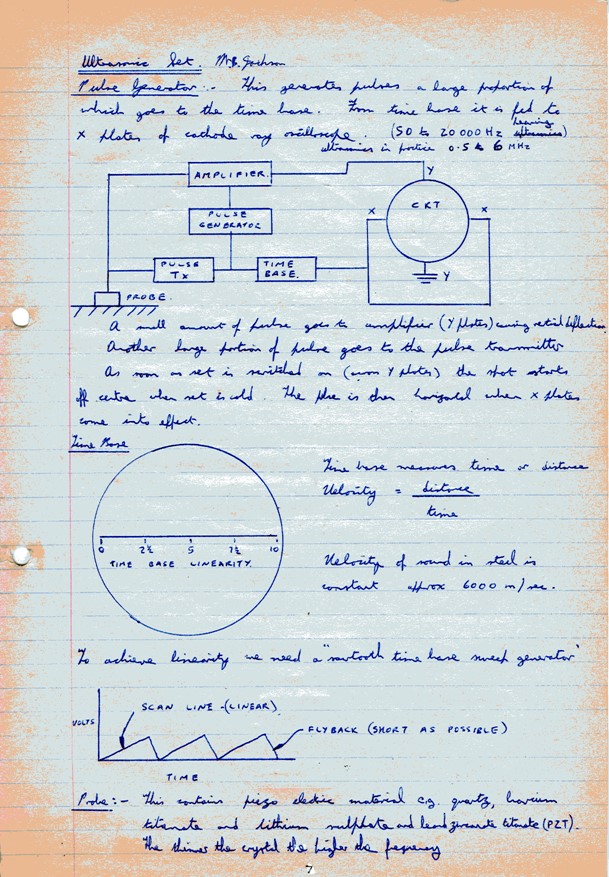 Ultrasonic Set. Mr B. Jackson
Pulse Generator :- This generates pulses a large proportion of
which goes to the time base. From time base it is fed to
X plates of cathode ray oscilloscope. (50 to 20 000 Hz hearing
ultrasonics in practice 0.5 to 6 MHz
AMPLIFIER.
Y
CRT
X
X
PULSE
GENERATOR
PULSE
TX
TIME
BASE.
Y
PROBE.
A small amount of pulse goes to amplifier (Y plates) causing vertical deflection
Another large portion of pulse goes to the pulse transmitter
As soon as set is switched on (Y plates) the spot starts
off centre when set is cold. The is then horizontal when X plates
come into effect.
Time Base
Time base measures time or distance
Velocity = distance
time
0 2½ 5 7½ 10
TIME BASE LINEARITY.
Velocity of sound in steel is
constant approx 6000 m/sec.
To achieve linearity we need a "sawtooth time base sweep generator"
SCAN LINE -(LINEAR).
VOLTS
FLYBACK (SHORT AS POSSIBLE)
TIME
Probe :- This contains piezo electric material e.g. quartz, barium
titanate and lithium sulphate and lead zirconate titanate (PZT).
The thinner the crystal the higher the frequency
7